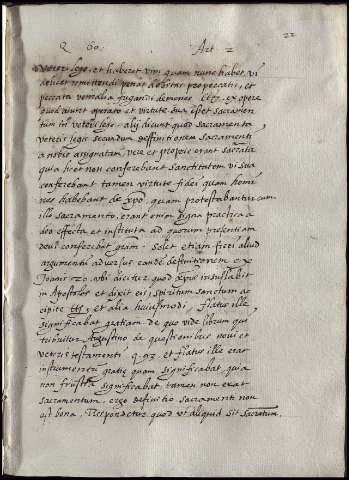 22
Q 60. Art 2
veteri lege, et haberet vim quam nunc habet, vi
delicet remittendi penas debitas pro peccatis, et
peccata venialia fugandi demones &c. ex opere
quod aiunt operato et virtute sua esset sacramen
tum in veteri lege. alij dicunt quod sacramenta
veteris legis secundum deffinitionem sacramenti
a nobis assignatam vere et proprie erant sacrã
quia licet non conferebant sanctitatem vi sua
conferebant tamen virtute fidei quam homi
nes habebant de xpo, quam protestabantur cum
illo sacramento, erant enim signa practica a
deo effecta et instituta ad quorum presentiam
deus conferebat gratiã. Solet etiam fieri aliud
argumentũ adversus eandẽ definitionem ex
Joanis 20. ubi dicitur quod xpus insuflabit
in Apostolos et dixit eis, spiritum sanctum ac
cipite et alia huiusmodi, flatus ille
significabat gratiam de quo vide librum qui
tribuitur Augustino de questionibus novi et
veteris testamenti q. 93. et flatus ille erat
instrumentũ gratie quam significabat, quia
non frustra significabat, tamen non erat
sacramentum. ergo definitio sacramenti non
est bona. Respondetur quod ut aliquid sit sacratum.